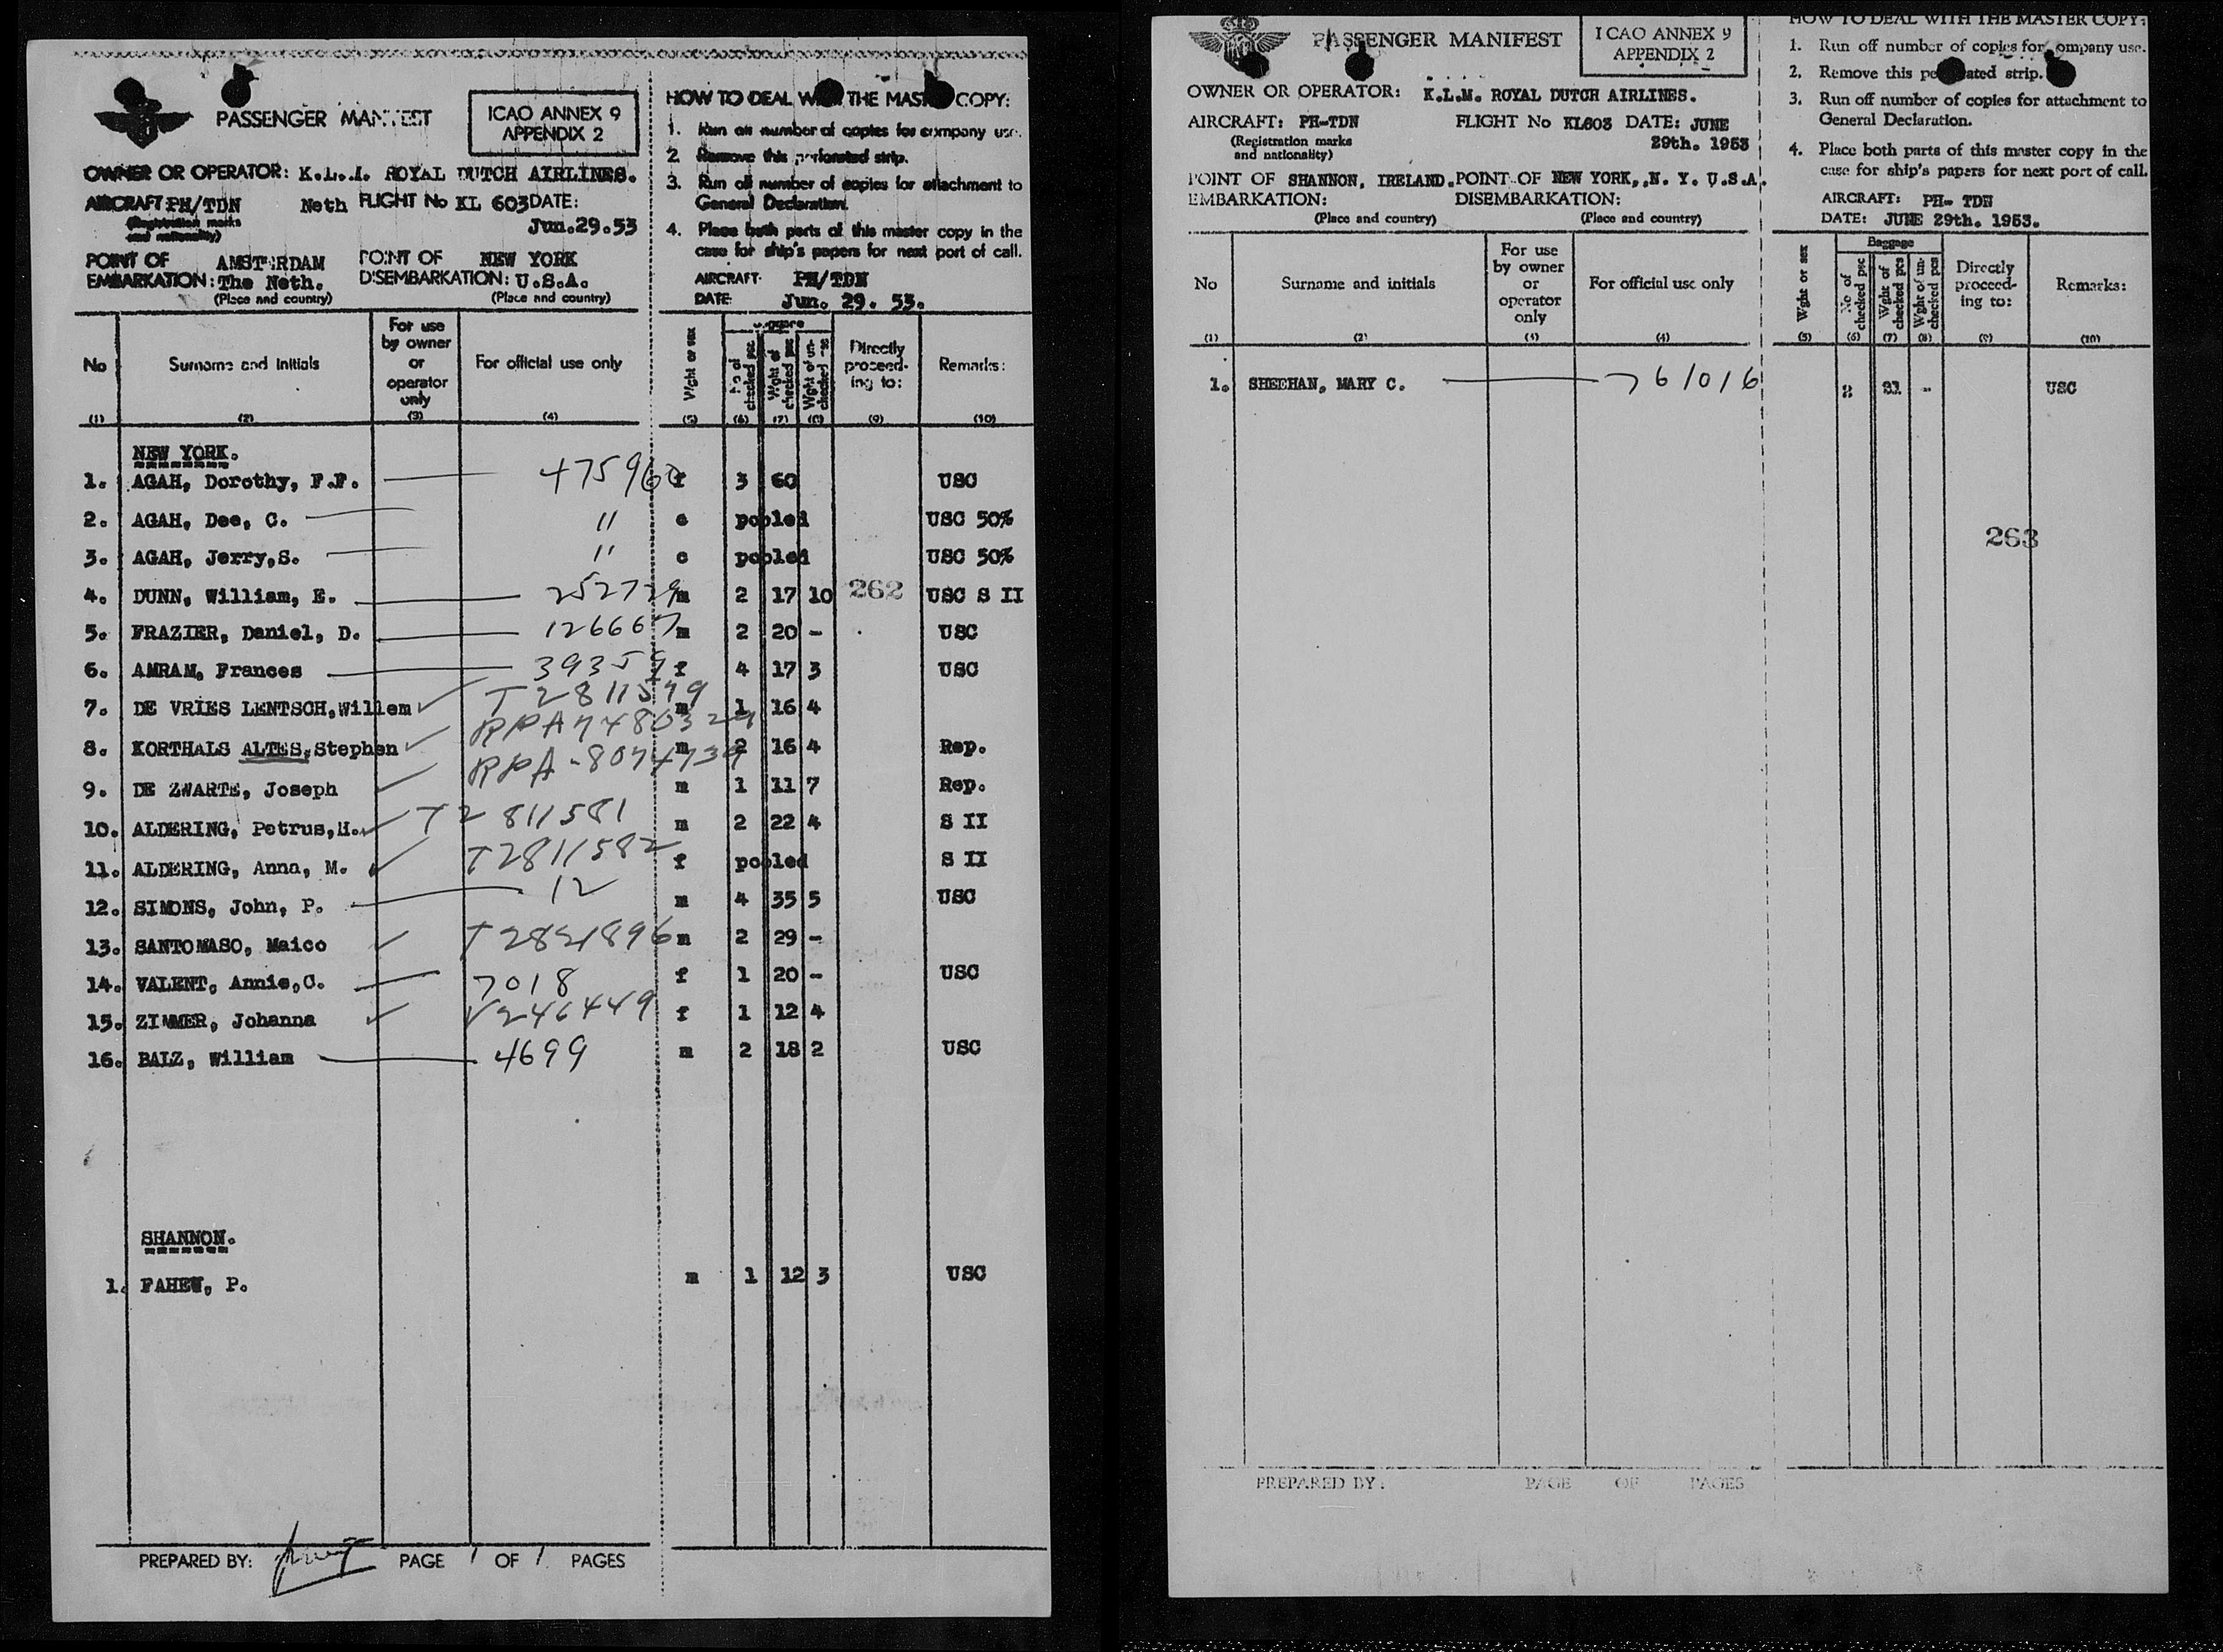 PASSENGER MANIFEST
ICAO ANNEX 9
APPENDIX 2
OWNER OR OPERATOR: K.L.M. ROYAL DUTCH AIRLINES.
AIRCRAFT PH/TDN Neth FLIGHT No KL 603 DATE:
(Registration marks
and nationality)
Jun.29.53
POINT OF AMSTERDAM POINT OF NEW YORK
EMBARKATION: The Neth. DISEMBARKATION: U.S.A.
(Place and country) (Place and country)
HOW TO DEAL WITH THE MASTER COPY:
1. Run off number of copies for company use.
2. Remove this perforated strip.
3. Run off number of copies for attachment to
General Declaration.
4. Place both parts of this master copy in the
case for ship's papers for next port of call.
AIRCRAFT: PH/TDN
DATE: Jun. 29. 53.
No Surname and initials For use by owner or operator only For official use only Wght or sex Baggage No of checked pcs Wght of checked pcs Wght of un-checked pcs Directly proceed-ing to: Remarks:
(1) (2) (3) (4) (5) (6) (7) (8) (9) (10)
NEW YORK.
1. AGAH, Dorothy, F.F. f 3 60 USC
2. AGAH, Dee, C. " c pooled USC 50%
3. AGAH, Jerry,S. " c pooled USC 50%
4. DUNN, William, E. 252729 m 2 17 10 262 USC S II
5. FRAZIER, Daniel, D. 126667 m 2 20 - USC
6. AMRAM, Frances f 4 17 3 USC
7. DE VRIES LENTSCH,Willem T2811579 m 1 16 4
8. KORTHALS ALTES,Stephen m 2 16 4 Rep.
9. DE ZWARTE, Joseph m 1 11 7 Rep.
10. ALDERING, Petrus,H. T2811581 m 2 22 4 S II
11. ALDERING, Anna, M. T2811582 f pooled S II
12. SIMONS, John, P. 12 m 4 35 5 USC
13. SANTOMASO, Maico m 2 29 -
14. VALENT, Annie,C. 7018 f 1 20 - USC
15. ZIMMER, Johanna V246449 f 1 12 4
16. BALZ, William 4699 m 2 18 2 USC
SHANNON.
1. FAHEW, P. m 1 12 3 USC
PREPARED BY: PAGE 1 OF 1 PAGES
PASSENGER MANIFEST
ICAO ANNEX 9
APPENDIX 2
OWNER OR OPERATOR: K.L.M. ROYAL DUTCH AIRLINES.
AIRCRAFT: PH-TDN FLIGHT No KL603 DATE: JUNE
(Registration marks
and nationality)
29th. 1953
POINT OF SHANNON, IRELAND. POINT OF NEW YORK,.N. Y. U.S.A.
EMBARKATION: DISEMBARKATION:
(Place and country) (Place and country)
HOW TO DEAL WITH THE MASTER COPY:
1. Run off number of copies for company use.
2. Remove this perforated strip.
3. Run off number of copies for attachment to
General Declaration.
4. Place both parts of this master copy in the
case for ship's papers for next port of call.
AIRCRAFT: PH- TDN
DATE: JUNE 29th. 1953.
No Surname and initials For use by owner or operator only For official use only Wght or sex Baggage No of checked psc Wght of checked pcs Wght of un-checked pcs Directly proceed-ing to: Remarks:
(1) (2) (3) (4) (5) (6) (7) (8) (9) (10)
1. SHEEHAN, MARY C. 761016 2 21 - USC
263
PREPARED BY: PAGE OF PAGES